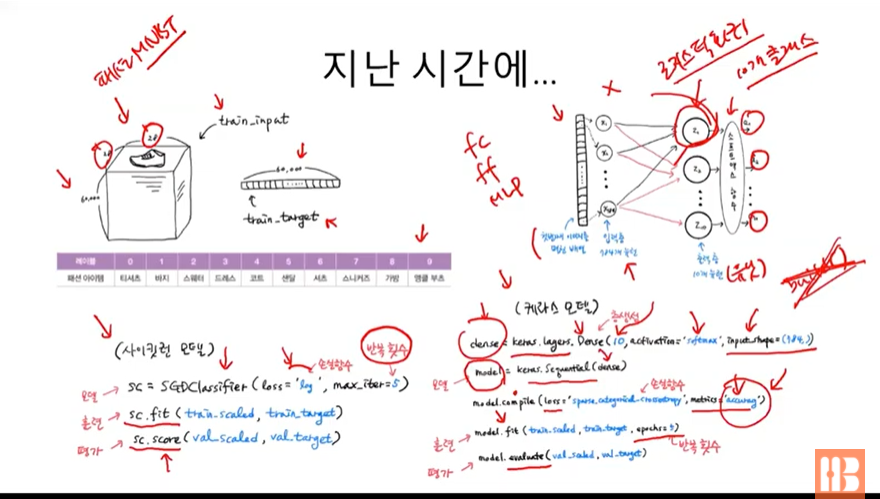 지난 시간에...
패션 MNIST
로지스틱 회귀
10개 클래스
train_input
28
28
60,000
60,000
train_target
레이블 0 1 2 3 4 5 6 7 8 9
패션 아이템 티셔츠 바지 스웨터 드레스 코트 샌달 셔츠 스니커즈 가방 앵클 부츠
fc
ff
MLP
x₁
z₁
소프트맥스 함수
입력층
784개 뉴런
출력층
10개 뉴런
(사이킷런 모델)
손실함수
반복 횟수
모델 → sc = SGDClassifier (loss='log', max_iter=5)
훈련 → sc.fit (train_scaled, train_target)
평가 → sc.score (val_scaled, val_target)
(케라스 모델)
층생성
dense = keras.layers.Dense(10, activation='softmax', input_shape=(784,))
모델 → model = keras.Sequential(dense)
손실함수
model.compile (loss='sparse_categorical_crossentropy', metrics='accuracy')
훈련 → model.fit (train_scaled, train_target, epochs=5)
반복 횟수
평가 → model.evaluate (val_scaled, val_target)